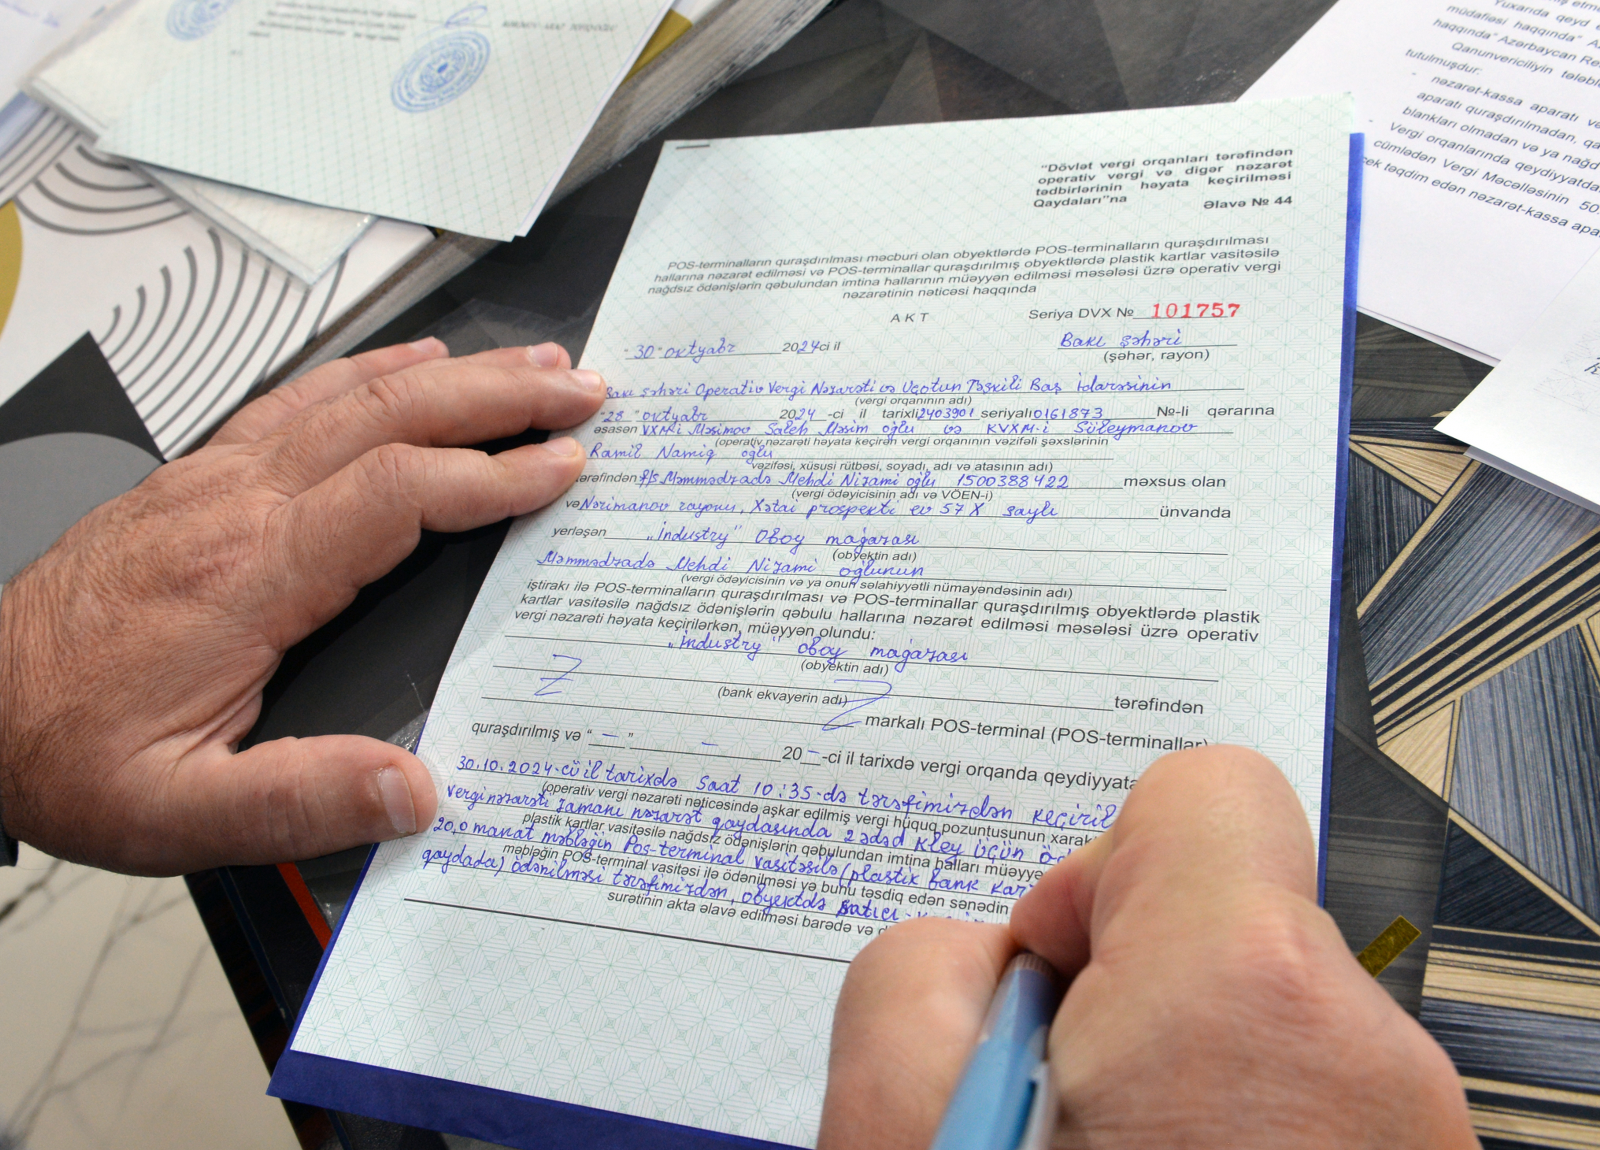 "Dövlət vergi orqanları tərəfindən
operativ vergi və digər nəzarət
tədbirlərinin həyata keçirilməsi
Qaydaları"na
Əlavə № 44
POS-terminalların quraşdırılması məcburi olan obyektlərdə POS-terminalların quraşdırılması
hallarına nəzarət edilməsi və POS-terminallar quraşdırılmış obyektlərdə plastik kartlar vasitəsilə
nağdsız ödənişlərin qəbulundan imtina hallarının müəyyən edilməsi məsələsi üzrə operativ vergi
nəzarətinin nəticəsi haqqında
AKT
Seriya DVX № 101757
"30" oktyabr 2024ci il
Bakı şəhəri
(şəhər, rayon)
Bakı şəhəri Operativ Vergi Nəzarəti və Uçotun Təşkili Baş İdarəsinin
(vergi orqanının adı)
"28" oktyabr 2024 -ci il tarixli 2403901 seriyalı 0161873 №-li qərarına
əsasən VXMİ Məsimov Saleh Məsim oğlu və KVXM-i Süleymanov
(operativ nəzarəti həyata keçirən vergi orqanının vəzifəli şəxslərinin
Ramil Namiq oğlu
vəzifəsi, xüsusi rütbəsi, soyadı, adı və atasının adı)
tərəfindən f/ş Məmmədzadə Mehdi Nizami oğlu 1500388422 məxsus olan
(vergi ödəyicisinin adı və VÖEN-i)
və Nərimanov rayonu, Xətai prospekti ev 57X saylı ünvanda
yerləşən "İndustry" Oboy mağazası
(obyektin adı)
Məmmədzadə Mehdi Nizami oğlunun
(vergi ödəyicisinin və ya onun səlahiyyətli nümayəndəsinin adı)
iştirakı ilə POS-terminalların quraşdırılması və POS-terminallar quraşdırılmış obyektlərdə plastik
kartlar vasitəsilə nağdsız ödənişlərin qəbulu hallarına nəzarət edilməsi məsələsi üzrə operativ
vergi nəzarəti həyata keçirilərkən, müəyyən olundu:
"İndustry" oboy mağazası
(obyektin adı)
Z Z tərəfindən
(bank ekvayerin adı)
markalı POS-terminal (POS-terminallar)
quraşdırılmış və "—" — 20—-ci il tarixdə vergi orqanda qeydiyyata
30.10.2024-cü il tarixdə saat 10:35-də tərəfimizdən keçiril
(operativ vergi nəzarəti nəticəsində aşkar edilmiş vergi hüquq pozuntusunun xarak
vergi nəzarəti zamanı nəzarət qaydasında 2 ədəd kley üçün
plastik kartlar vasitəsilə nağdsız ödənişlərin qəbulundan imtina halları müəyyə
20,0 manat məbləğin Pos-terminal vasitəsilə (plastik bank kar
məbləğin POS-terminal vasitəsi ilə ödənilməsi və bunu təsdiq edən sənədin
qaydada) ödənilməsi tərəfimizdən, obyektdə satıcı-
surətinin akta əlavə edilməsi barədə və d
Yuxarıda qeyd
müdafiəsi haqqında"
haqqında" Azərbaycan
Qanunvericiliyin
tutulmuşdur:
- nəzarət-kassa aparatı
aparatı quraşdırılmadan,
blankları olmadan və ya nağd
- Vergi orqanlarında
cümlədən Vergi Məcəlləsinin 50
təqdim edən nəzarət-kassa